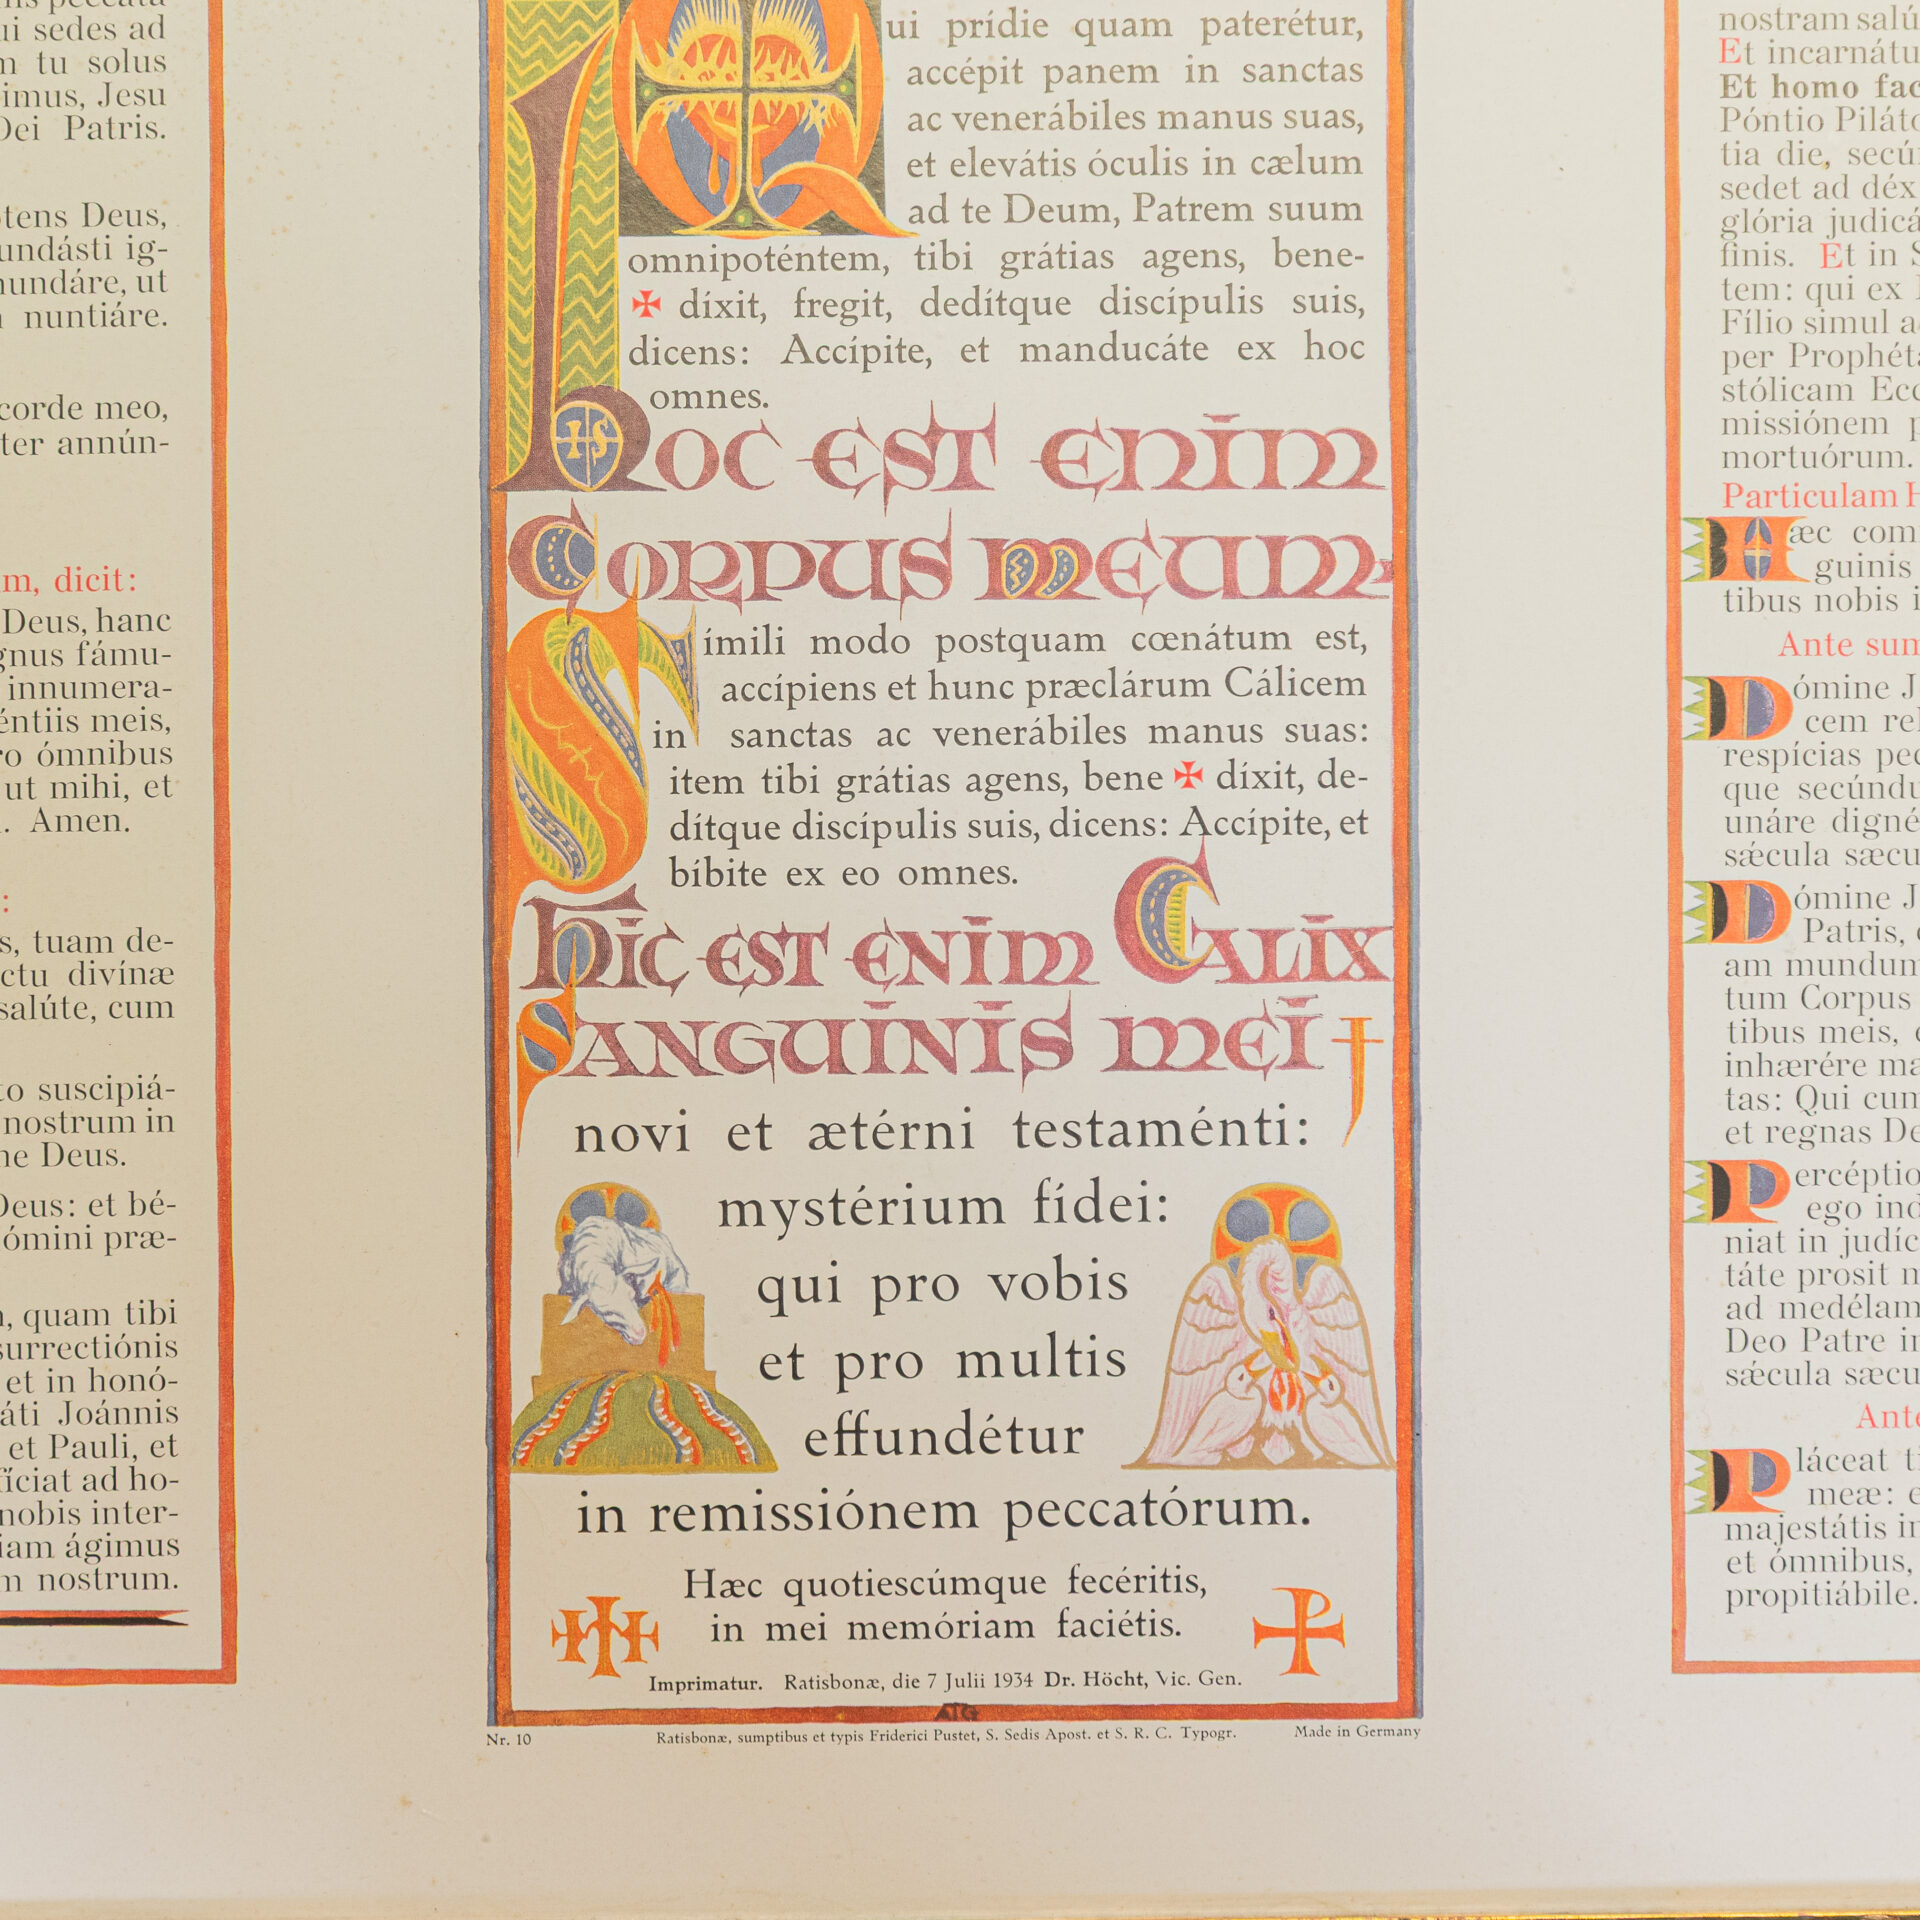 sedes ad
tu solus
Jesu
Patris.
Deus,
ig-
ut
nuntiáre.
corde meo,
dicit:
Deus, hanc
fámu-
innumera-
meis,
ómnibus
ut mihi, et
Amen.
tuam de-
divínæ
salúte, cum
suscipiá-
nostrum in
Deus.
et bé-
præ-
quam tibi
et in honó-
Joánnis
et Pauli, et
ad ho-
nobis inter-
ágimus
nostrum.
Qui prídie quam paterétur,
accépit panem in sanctas
ac venerábiles manus suas,
et elevátis óculis in cælum
ad te Deum, Patrem suum
omnipoténtem, tibi grátias agens, bene-
✠ díxit, fregit, dedítque discípulis suis,
dicens: Accípite, et manducáte ex hoc
omnes.
IHS
HOC EST ENIM
CORPUS MEUM.
Símili modo postquam cœnátum est,
accípiens et hunc præclárum Cálicem
in sanctas ac venerábiles manus suas:
item tibi grátias agens, bene ✠ díxit, de-
dítque discípulis suis, dicens: Accípite, et
bíbite ex eo omnes.
HIC EST ENIM CALIX
SANGUINIS MEI
novi et ætérni testaménti:
mystérium fídei:
qui pro vobis
et pro multis
effundétur
in remissiónem peccatórum.
Hæc quotiescúmque fecéritis,
in mei memóriam faciétis.
Imprimatur. Ratisbonæ, die 7 Julii 1934 Dr. Höcht, Vic. Gen.
Nr. 10 Ratisbonæ, sumptibus et typis Friderici Pustet, S. Sedis Apost. et S. R. C. Typogr. Made in Germany
nostram
Et
Et homo
Póntio
tia die,
sedet ad
glória
finis. Et in
tem: qui ex
Fílio simul
per
stólicam
missiónem
mortuórum.
Particulam
Hæc
guinis
tibus nobis
Ante
Dómine
cem
respícias
que
unáre
sǽcula
Dómine
Patris,
am mundum
tum Corpus
tibus meis,
inhærére
tas: Qui
et regnas
ego
niat in
táte prosit
ad
Deo Patre
sǽcula
Pláceat
meæ:
majestátis
et ómnibus,
propitiábile.